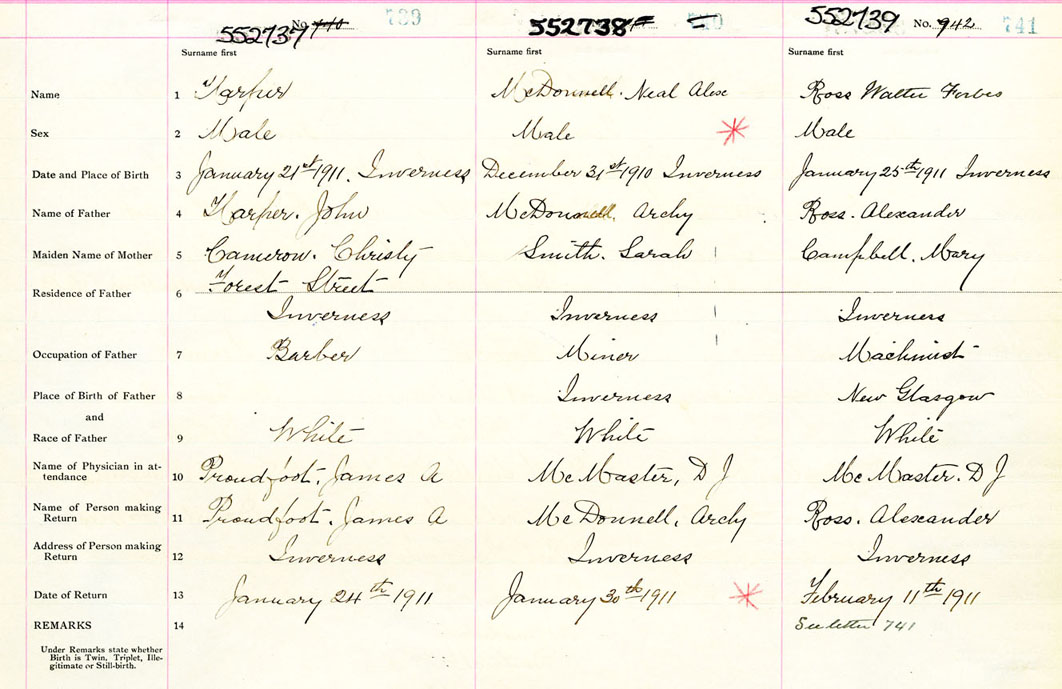 552737 No. 739
552738
552739 No. 942 741
Surname first Surname first Surname first
Name 1 Harper McDonnell. Neal Alex Ross Walter Forbes
Sex 2 Male Male Male
Date and Place of Birth 3 January 21st 1911. Inverness December 31st 1910 Inverness January 25th 1911 Inverness
Name of Father 4 Harper. John McDonnell. Archy Ross. Alexander
Maiden Name of Mother 5 Cameron. Christy Smith. Sarah Campbell. Mary
Residence of Father 6 Forest Street
Inverness Inverness Inverness
Occupation of Father 7 Barber Miner Machinist
Place of Birth of Father 8 Inverness New Glasgow
and
Race of Father 9 White White White
Name of Physician in at-
tendance 10 Proudfoot. James A McMaster, D J McMaster. D J
Name of Person making
Return 11 Proudfoot. James A McDonnell, Archy Ross. Alexander
Address of Person making
Return 12 Inverness Inverness Inverness
Date of Return 13 January 24th 1911 January 30th 1911 February 11th 1911
REMARKS 14 See letter 741
Under Remarks state whether
Birth is Twin. Triplet, Ille-
gitimate or Still-birth.